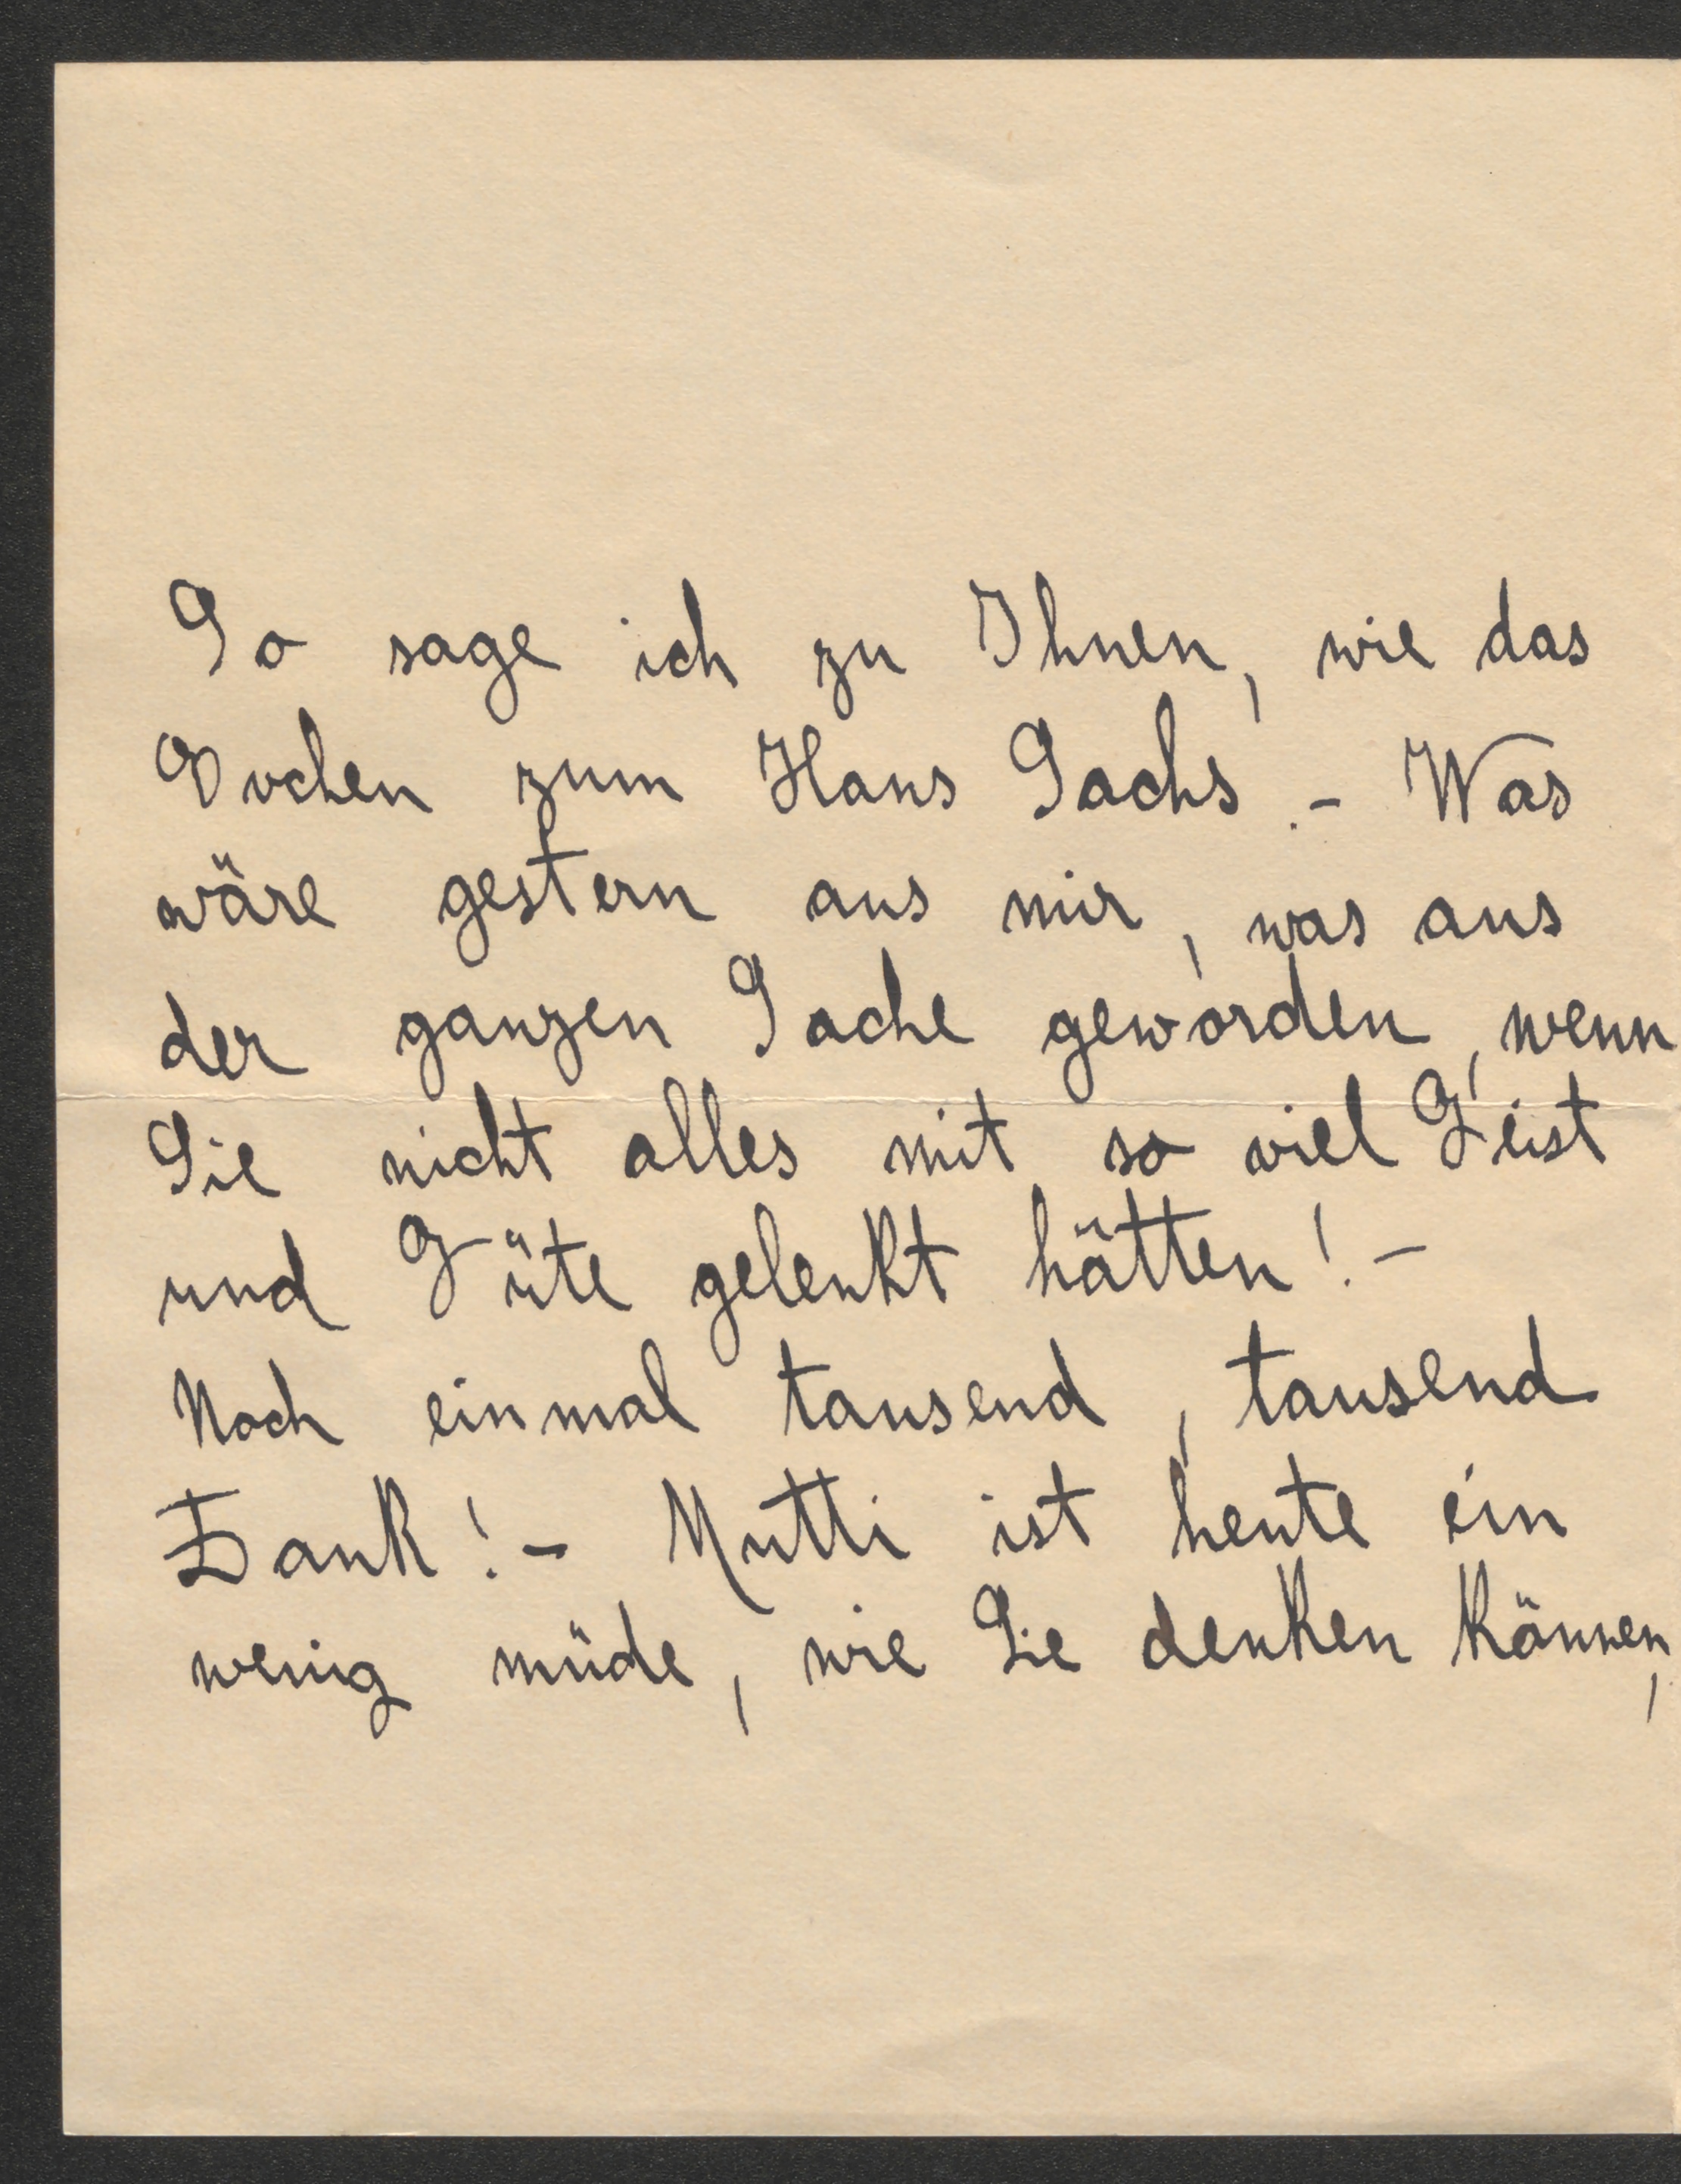 So sage ich zu Ihnen, wie das
Evchen zum Hans Sachs.- Was
wäre gestern aus mir, was aus
der ganzen Sache geworden, wenn
Sie nicht alles mit so viel Geist
und Güte gelenkt hätten!-
Noch einmal tausend, tausend
Dank!- Mutti ist heute ein
wenig müde, wie Sie denken können,